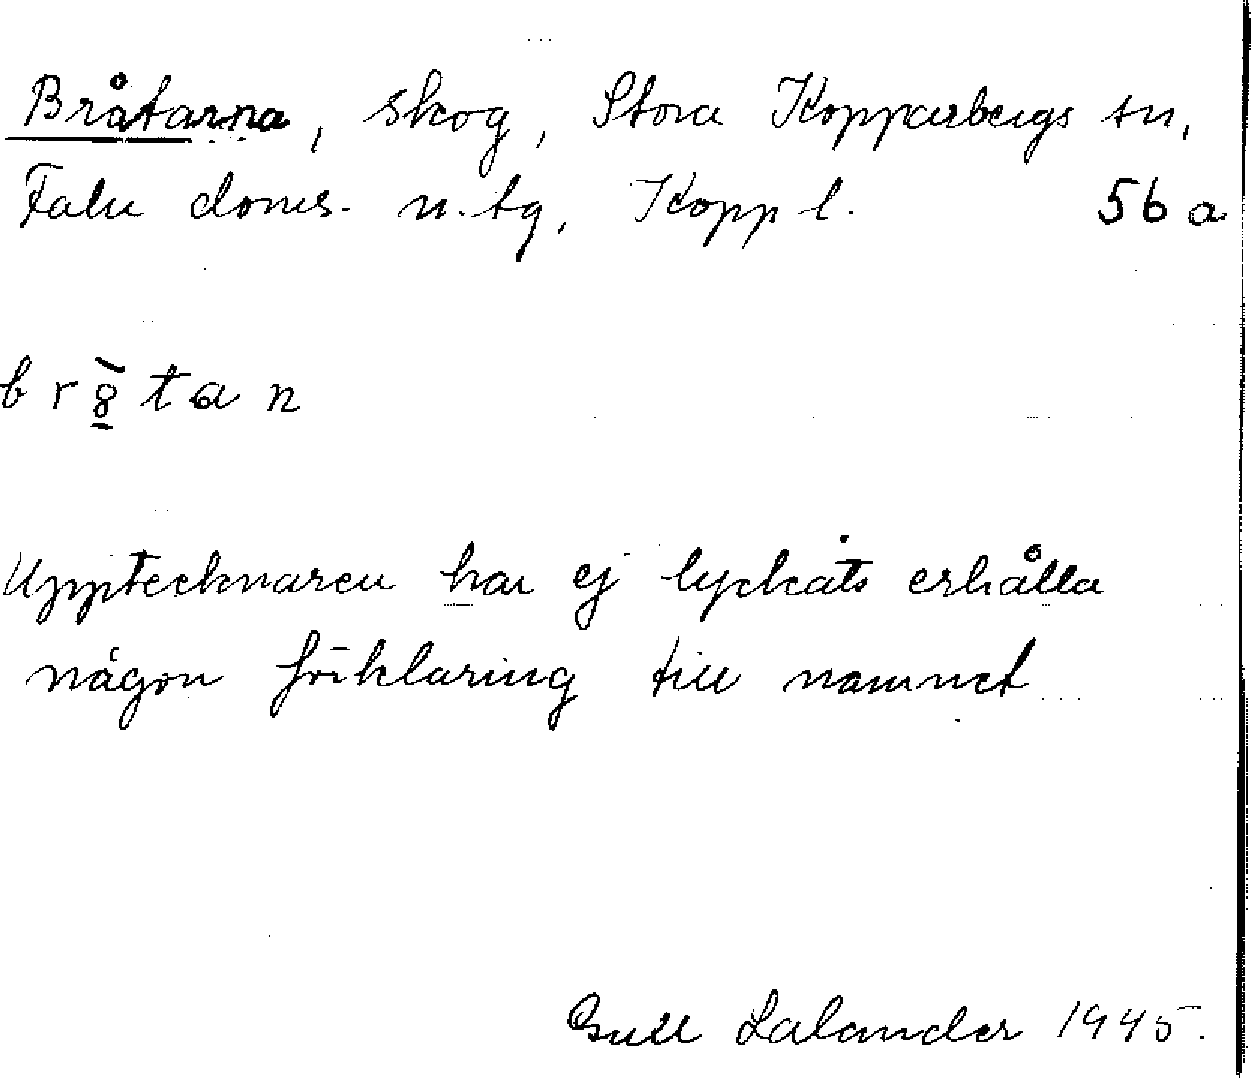 Bråtarna, skog, Stora Kopparbergs sn,
Falu doms. n. tg, Kopp l. 56 a
br8̠̀tan
Upptecknaren har ej lyckats erhålla
någon förklaring till namnet
Gull Lalander 1945.